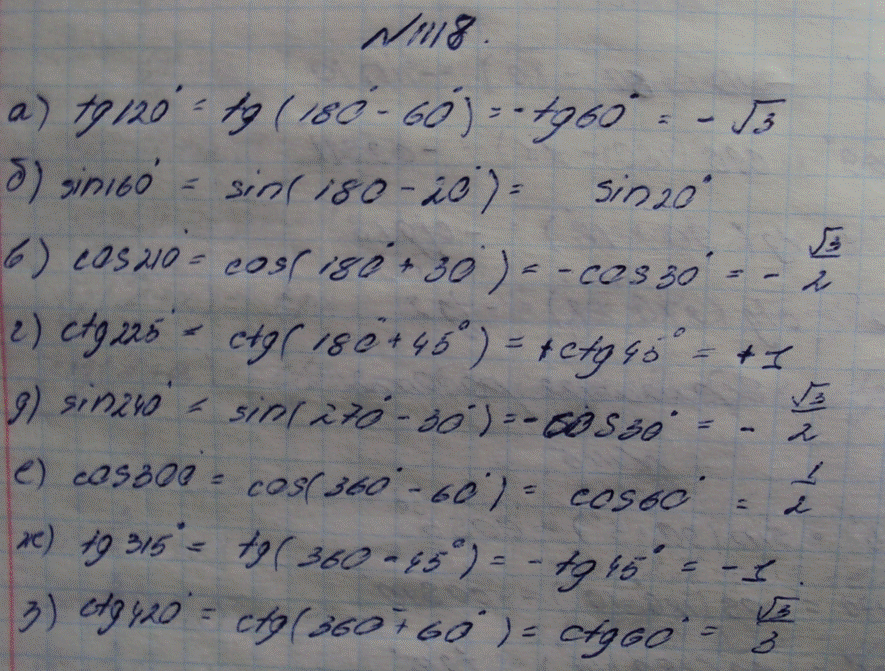 N1118.
а) tg120° = tg(180° - 60°) = -tg60° = -√3
б) sin160° = sin(180 - 20°) = sin20°
в) cos210° = cos(180° + 30°) = -cos30° = -√3/2
г) ctg225° = ctg(180° + 45°) = +ctg45° = +1
д) sin240° = sin(270° - 30°) = -cos30° = -√3/2
е) cos300° = cos(360° - 60°) = cos60° = 1/2
ж) tg315° = tg(360 - 45°) = -tg45° = -1.
з) ctg420° = ctg(360° + 60°) = ctg60° = √3/3